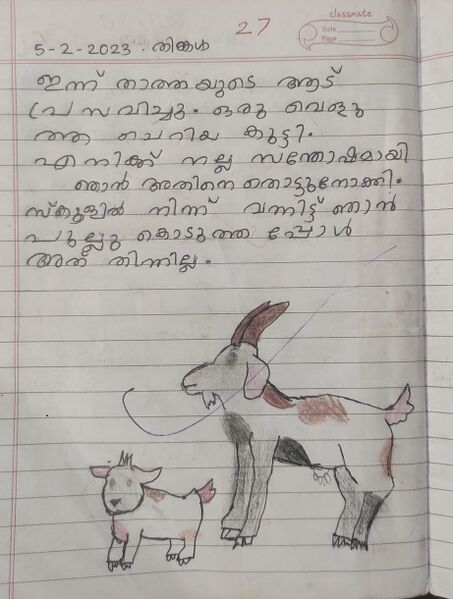 27
classmate
Date
Page
5-2-2023. തിങ്കൾ
ഇന്ന് താത്തയുടെ ആട്
പ്രസവിച്ചു. ഒരു വെളു
ത്ത ചെറിയ കുട്ടി.
എനിക്ക് നല്ല സന്തോഷമായി
ഞാൻ അതിനെ തൊട്ടുനോക്കി.
സ്കൂളിൽ നിന്ന് വന്നിട്ട് ഞാൻ
പുല്ലു കൊടുത്തപ്പോൾ
അത് തിന്നില്ല.